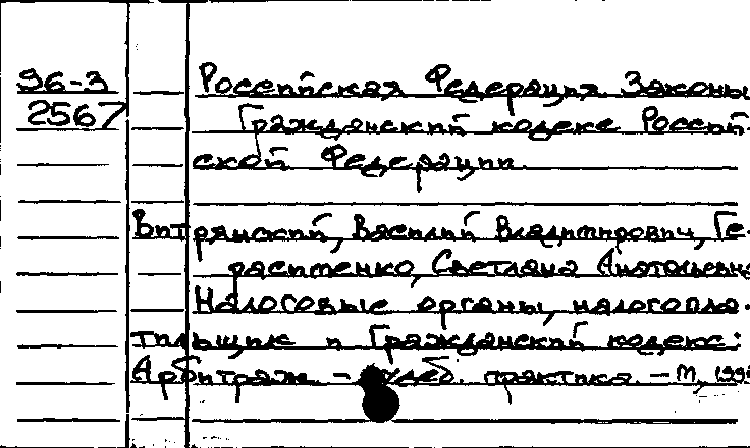 96-3 Российская Федерация. Законы
2567 Гражданский кодекс Россий-
ской Федерации.
Витрянский, Василий Владимирович, Ге-
расименко, Светлана Анатольевна
Налоговые органы, налогопла-
тильщик и Гражданский кодекс:
Арбитраж. – судеб. практика. – М, 199